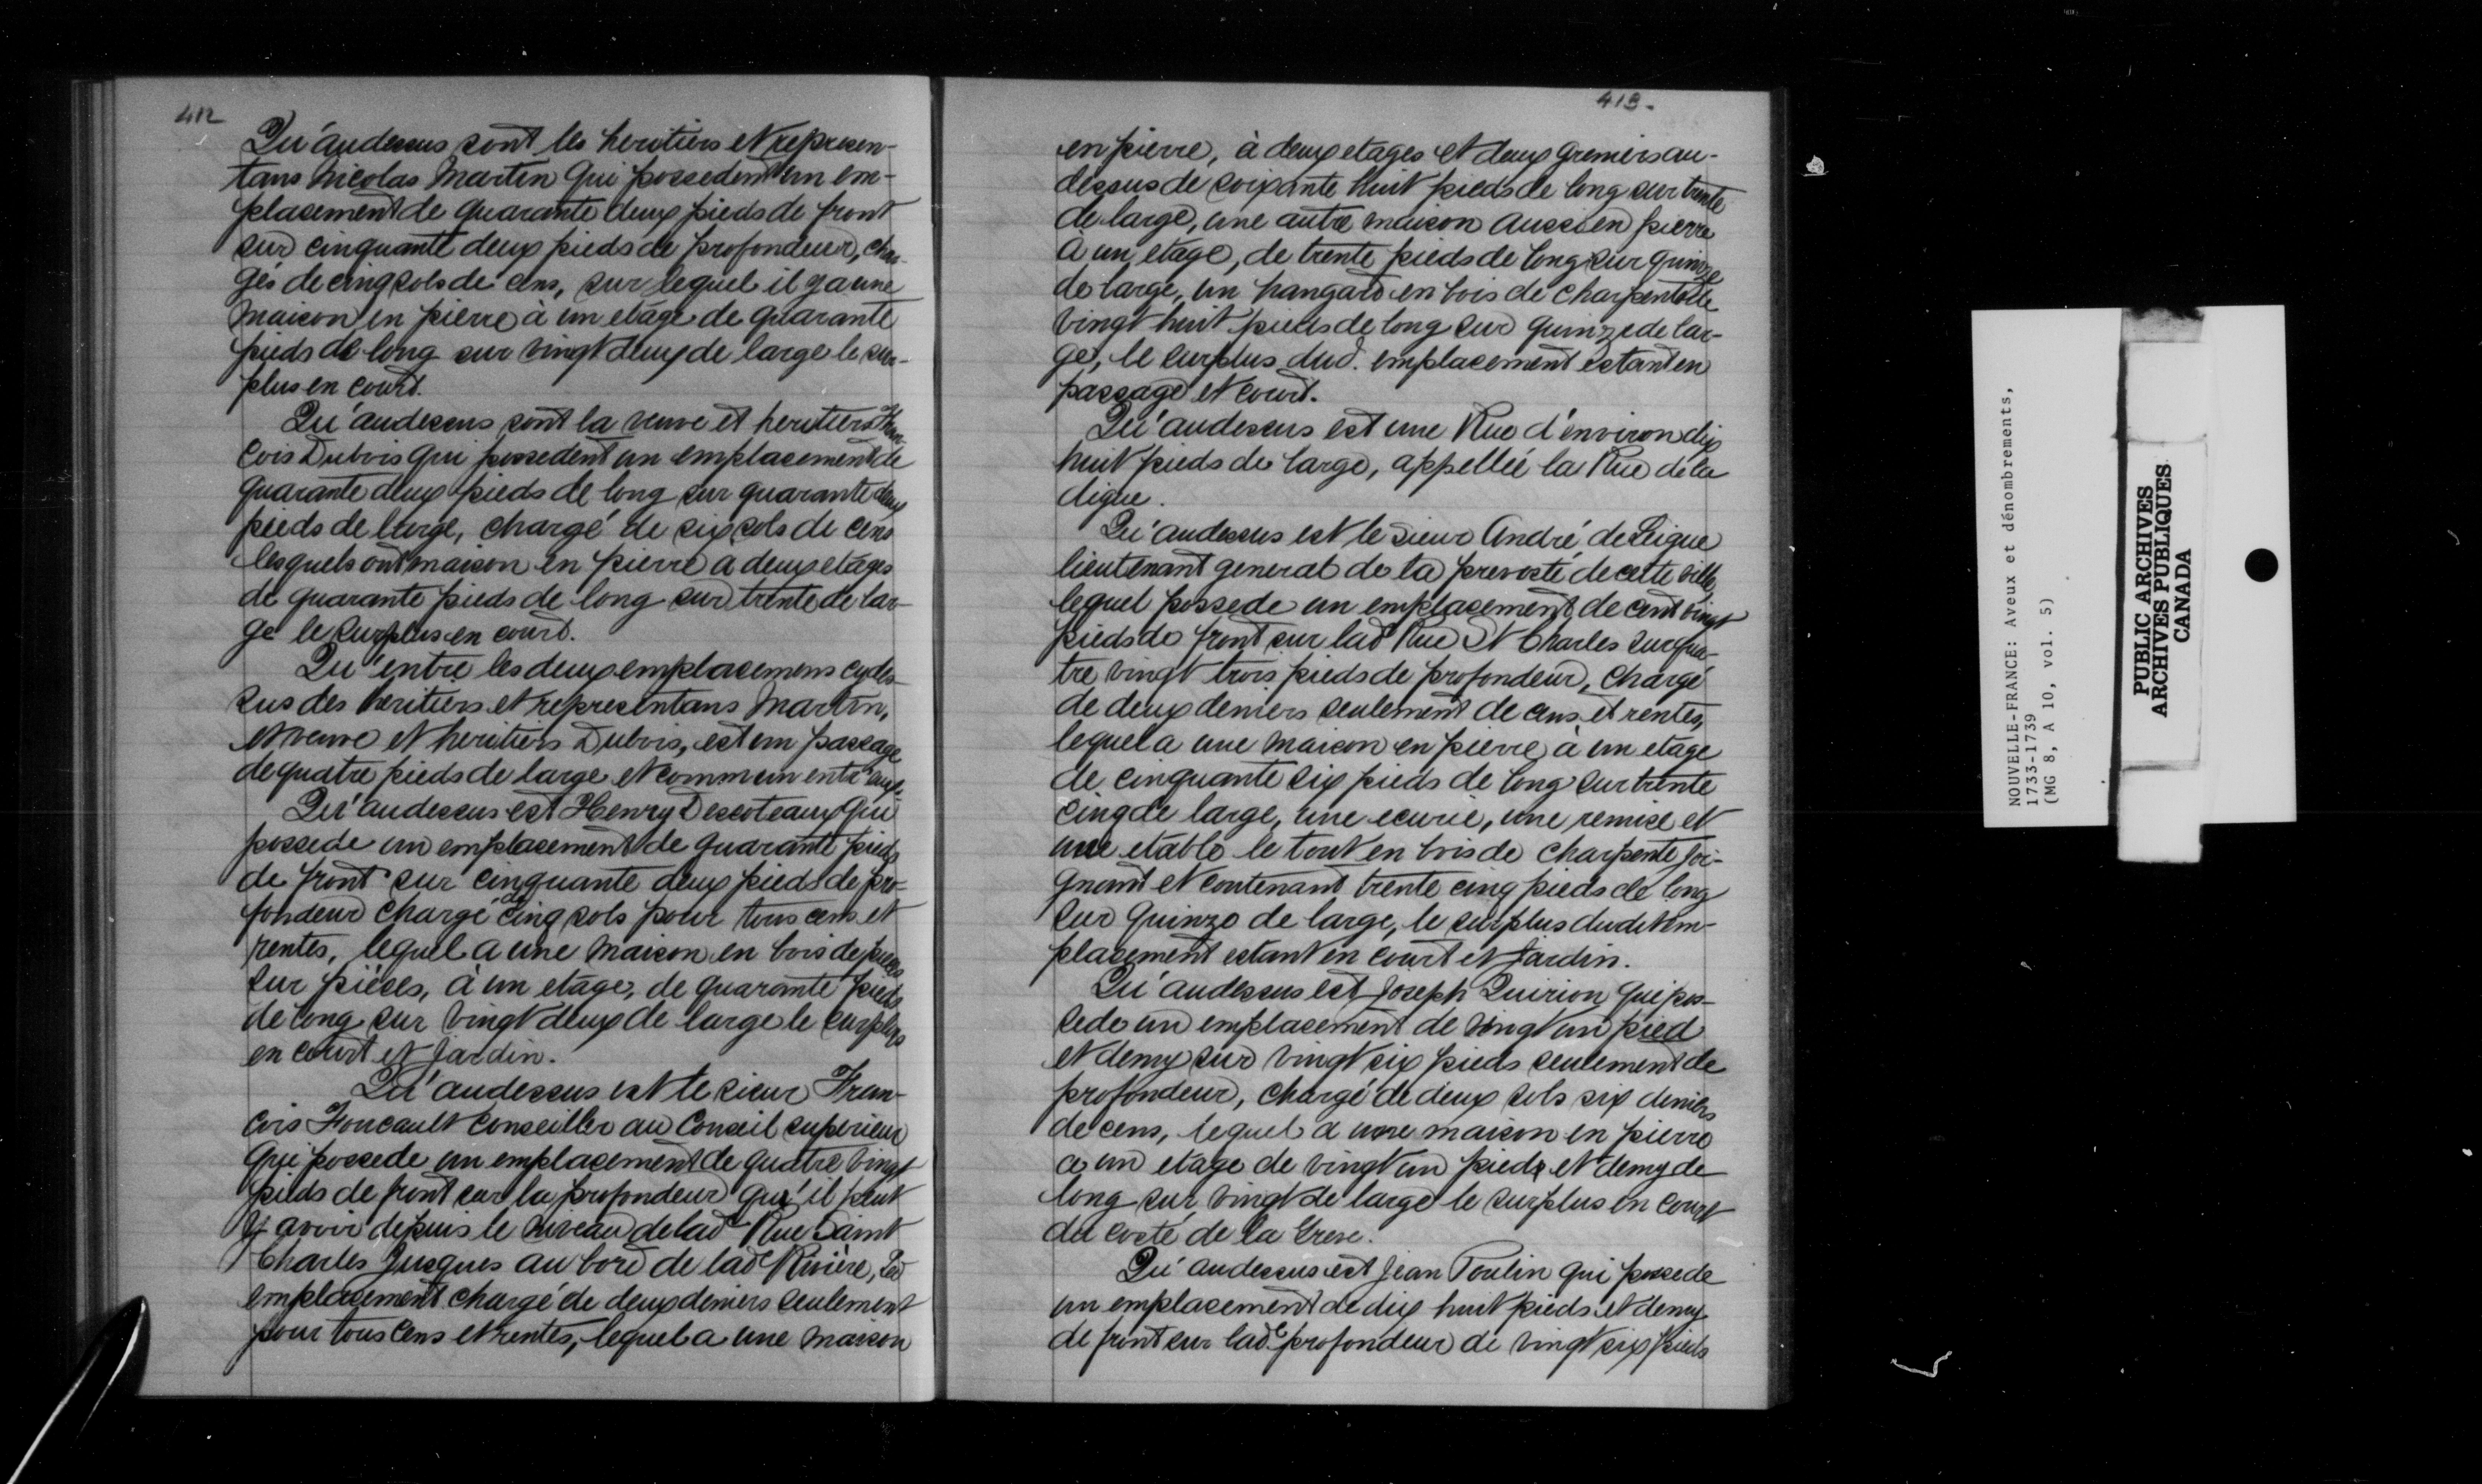 412
Qu'audessus sont les heritiers et represen-
tans Nicolas Martin qui possedent un em-
placement de quarante deux pieds de front
sur cinquante deux pieds de profondeur, char-
gés de cinq sols de cens, sur lequel il y a une
maison en pierre à un etage de quarante
pieds de long sur vingt deux de large le sur-
plus en court.
Qu'audessus sont la veuve et heritiers Fran-
cois Dubois qui possedent un emplacement de
quarante deux pieds de long sur quarante deux
pieds de large, chargé de six sols de cens
lesquels ont maison en pierre a deux etages
de quarante pieds de long sur trente de lar-
ge le surplus en court.
Qu'entre les deux emplacemens cydes-
sus des heritiers et representans Martin,
et veuve et heritiers Dubois, est un passage
de quatre pieds de large et commun entr'eux.
Qu'audessus est Henry Descoteaux qui
possede un emplacement de quarante pieds
de front sur cinquante deux pieds de pro-
fondeur chargé de cinq sols pour tous cens et
rentes, lequel a une maison en bois de pieces
sur pièces, à un etage, de quarante pieds
de long sur vingt deux de large le surplus
en court et jardin.
Qu'audessus est le sieur Fran-
cois Foucault Conseiller au Conseil superieur
qui possede un emplacement de quatre vingt
pieds de front sur la profondeur qu'il peut
y avoir depuis le niveau de lad. Rue Saint
Charles jusques au bord de lad.e Rivière, led
emplacement chargé de deux deniers seulement
pour tous cens et rentes, lequel a une maison
413.
en pierre, à deux etages et deux greniers au-
dessus de soixante huit pieds de long sur trente
de large, une autre maison aussi en pierre
à un etage, de trente pieds de long sur quinze
de large, un hangard en bois de charpente de
vingt huit pieds de long sur quinze de lar-
ge, le surplus dud. emplacement estant en
passage et court.
Qu'audessus est une Rue d'environ dix
huit pieds de large, appellée la Rue de la
digue.
Qu'audessus est le sieur André de Leigne
lieutenant general de la prevosté de cette ville,
lequel possede un emplacement de cent vingt
pieds de front sur lad Rue St Charles sur qua-
tre vingt trois pieds de profondeur, chargé
de deux deniers seulement de cens et rentes,
lequel a une maison en pierre à un etage
de cinquante six pieds de long sur trente
cinq de large, une ecurie, une remise et
une etable le tout en bois de charpente joi-
gnant et contenant trente cinq pieds de long
sur quinze de large, le surplus dudit em-
placement estant en court et jardin.
Qu'audessus est Joseph Quirion qui pos-
sede un emplacement de vingt un pied
et demy sur vingt six pieds seulement de
profondeur, chargé de deux sols six deniers
de cens, lequel a une maison en pierre
a un etage de vingt un pieds et demy de
long sur vingt de large le surplus en court
du costé de la Greve.
Qu'audessus est Jean Poulin qui possede
un emplacement de dix huit pieds et demy
de front sur lad.e profondeur de vingt six pieds
NOUVELLE-FRANCE: Aveux et dénombrements,
1733-1739
(MG 8, A 10, vol. 5)
PUBLIC ARCHIVES
ARCHIVES PUBLIQUES
CANADA